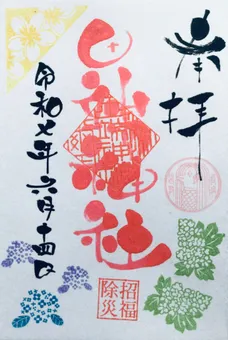 奉拝
日枝神社
令和七年六月十四日
招福
除災